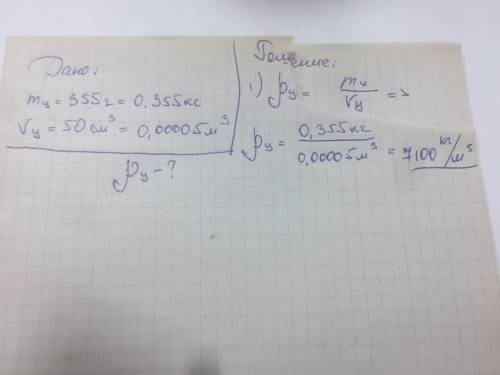 Дано:
mц = 355г = 0,355кг
Vц = 50 см³ = 0,00005м³
ρц - ?
Решение:
1) ρц = mц / Vц =>
ρц = 0,355кг / 0,00005м³ = 7100 кг/м³